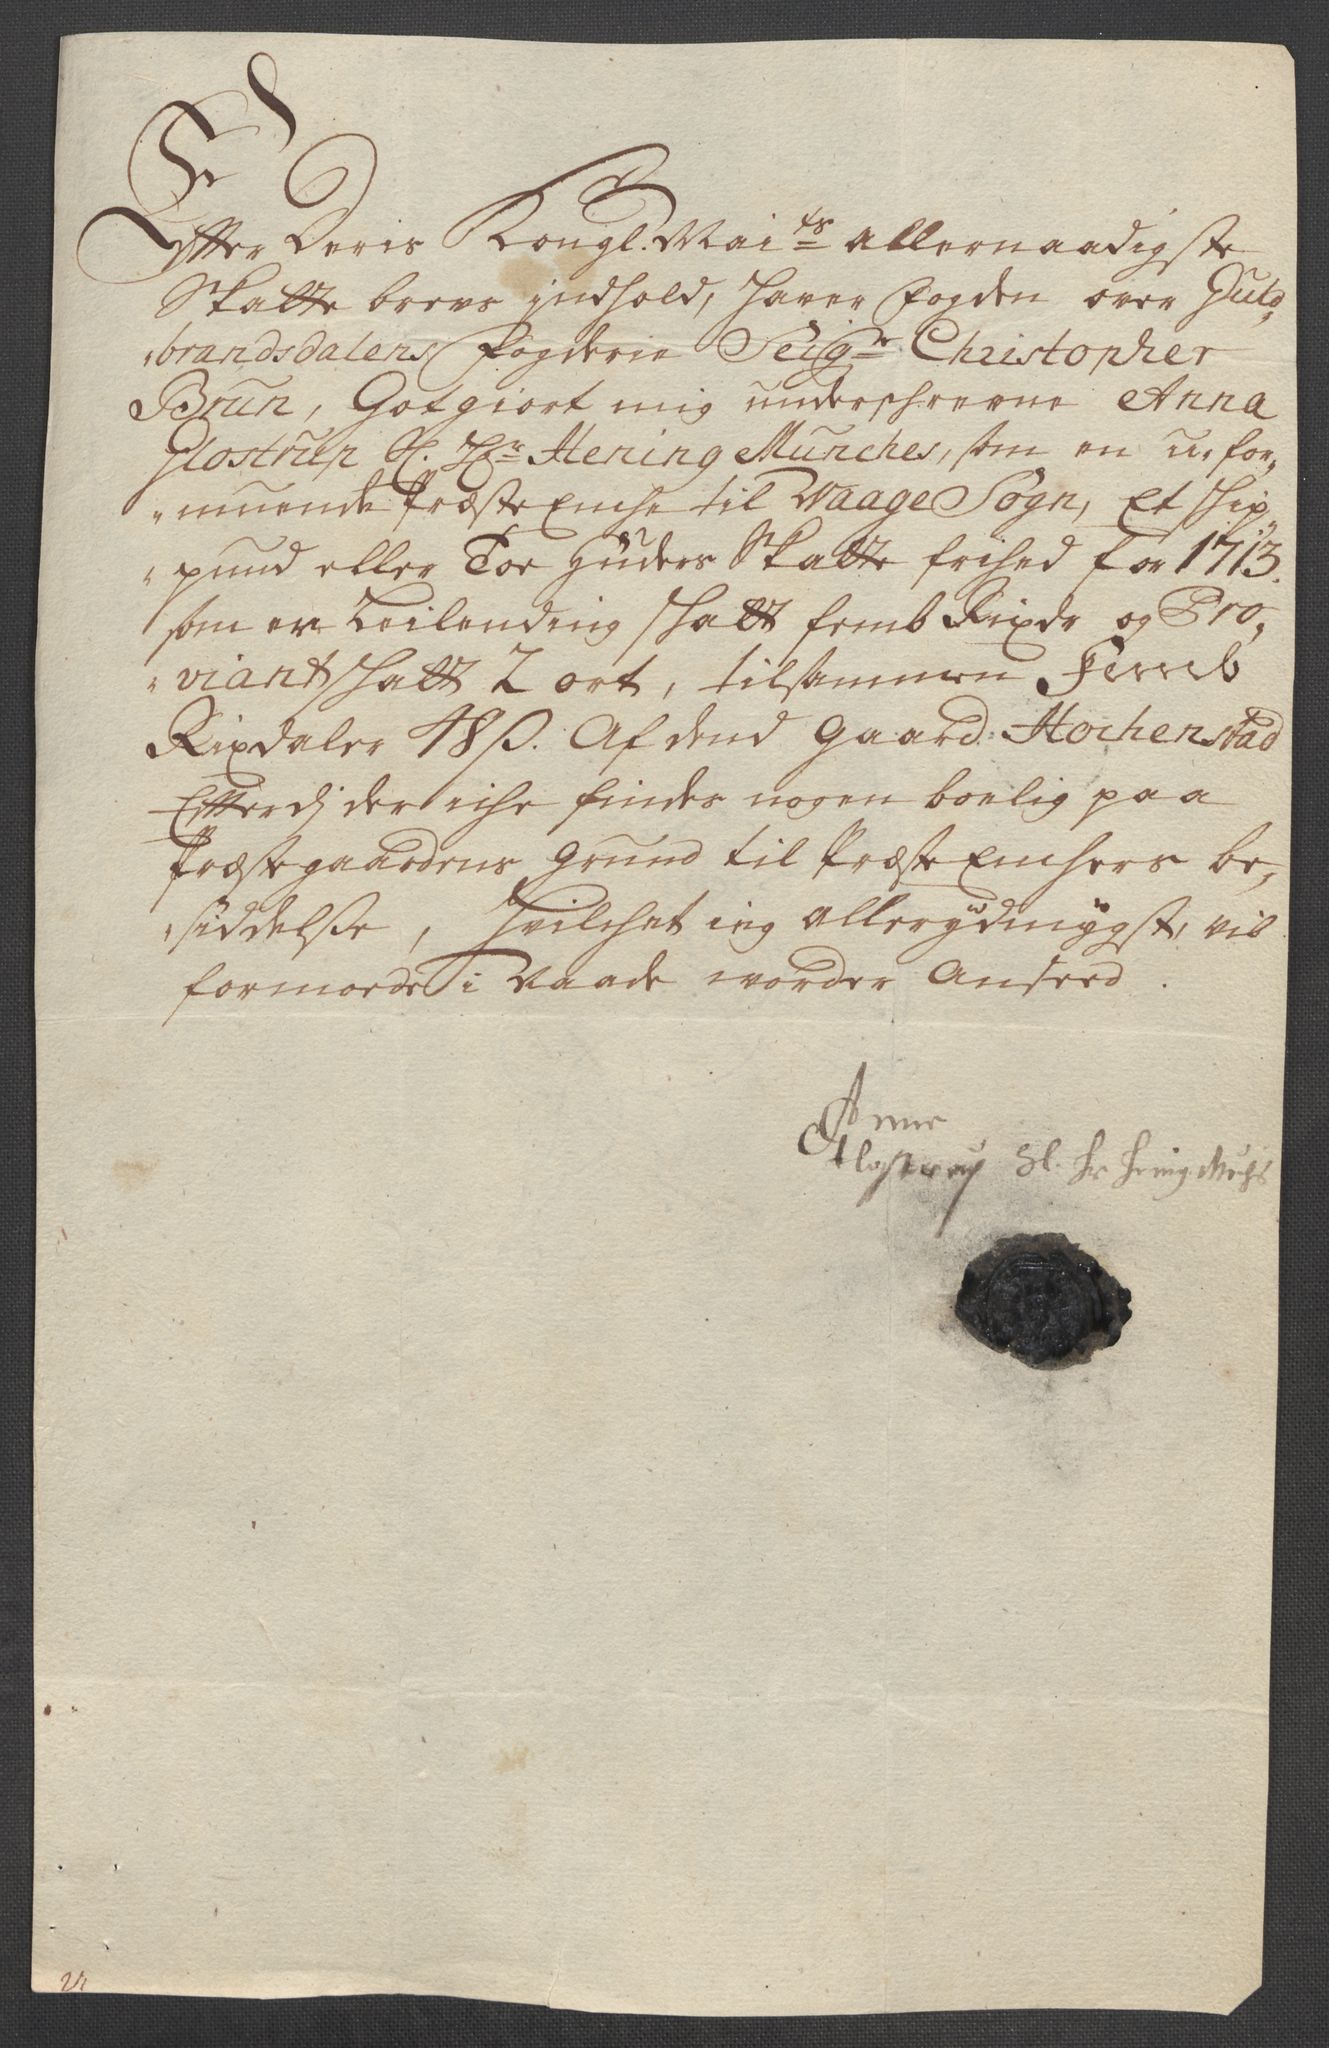 Efter Deris Kongl. Mai:ts allernaadigste
Skatte brevs jndhold, haver fogden over Guld„
„brandsdalens fogderie Seigr. Christopher
Brun, Gotgiort mig underschrevne Anna
Glostrup Sl. Hr. Hening Munches, som en u-for„
„muende PræsteEnche til Waage Sogn, Et schip„
„pund eller Toe Huders Skatte frihed for 1713.
som er Leilending schatt femb Rixdr og Pro„
„viant schatt 2 ort, tilsammen Femb
Rixdaler 48 ß. Af dend Gaard Hochenstad
Efterdj der iche findes nogen boelig paa
Præstegaardens Grund til PræsteEnchers be„
„siddelse, hvilchet ieg allerydmygst, vil
formode i Naade worder Anseed.
Anne
Glostrup Sl. Hr Hening Munchs